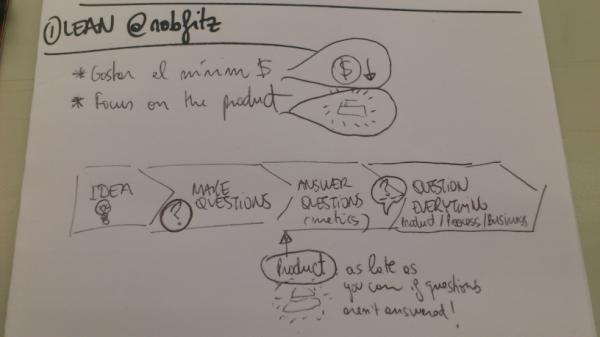 ① LEAN @robfitz
* Gastar el mínim $
$
* Focus on the product
IDEA
MAKE
QUESTIONS
?
ANSWER
QUESTIONS
(metrics)
?
QUESTION
EVERYTHING
Product/Process/Business
Product
as late as
you can if questions
aren't answered!